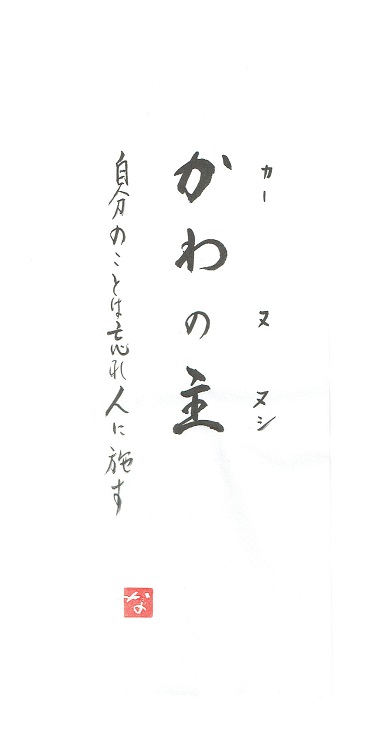 カー ヌ ヌシ
かわの主
自分のことは忘れ人に施す
な